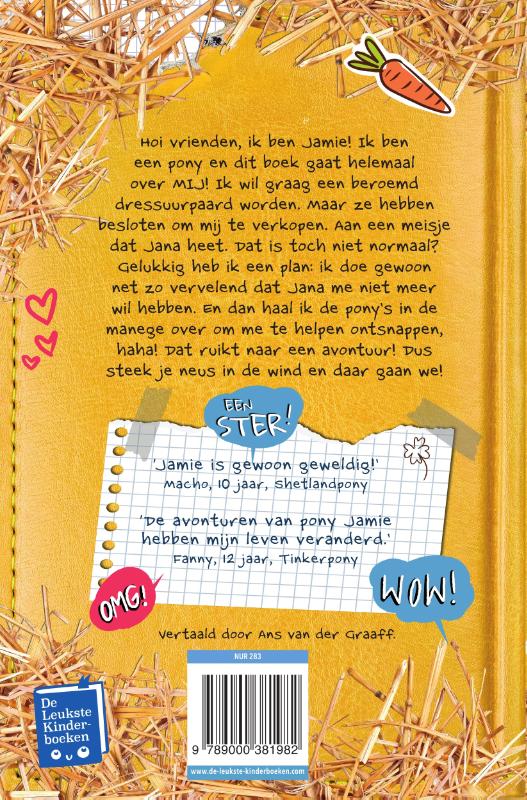 Hoi vrienden, ik ben Jamie! Ik ben
een pony en dit boek gaat helemaal
over MIJ! Ik wil graag een beroemd
dressuurpaard worden. Maar ze hebben
besloten om mij te verkopen. Aan een meisje
dat Jana heet. Dat is toch niet normaal?
Gelukkig heb ik een plan: ik doe gewoon
net zo vervelend dat Jana me niet meer
wil hebben. En dan haal ik de pony's in de
manege over om me te helpen ontsnappen,
haha! Dat ruikt naar een avontuur! Dus
steek je neus in de wind en daar gaan we!
EEN
STER!
'Jamie is gewoon geweldig!'
Macho, 10 jaar, Shetlandpony
'De avonturen van pony Jamie
hebben mijn leven veranderd.'
Fanny, 12 jaar, Tinkerpony
OMG!
WOW!
Vertaald door Ans van der Graaff.
NUR 283
De
Leukste
Kinder-
boeken
9 789000 381982
www.de-leukste-kinderboeken.com